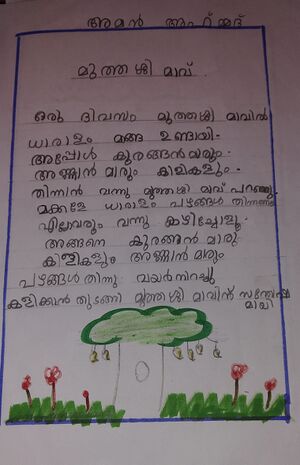 അമൻ അഹ്മ്മദ്
മുത്തശ്ശി മാവ്
ഒരു ദിവസം മുത്തശ്ശി മാവിൽ
ധാരാളം മങ്ങ ഉണ്ടായി.
അപ്പോൾ കുരങ്ങൻമാരും
അണ്ണാൻ മാരും കിളികളും.
തിന്നാൻ വന്നു മുത്തശ്ശി മാവ് പറഞ്ഞു.
മക്കളേ ധാരാളം പഴങ്ങൾ തിന്നണം
എല്ലാവരും വന്നു കഴിച്ചോളൂ.
അങ്ങനെ കുരങ്ങൻ മാരു
കിളികളും അണ്ണാൻ മാരും
പഴങ്ങൾ തിന്നു വയർ നിറച്ചു
കളിക്കാൻ തുടങ്ങി മുത്തശ്ശി മാവിന് സന്തോഷ
മായി